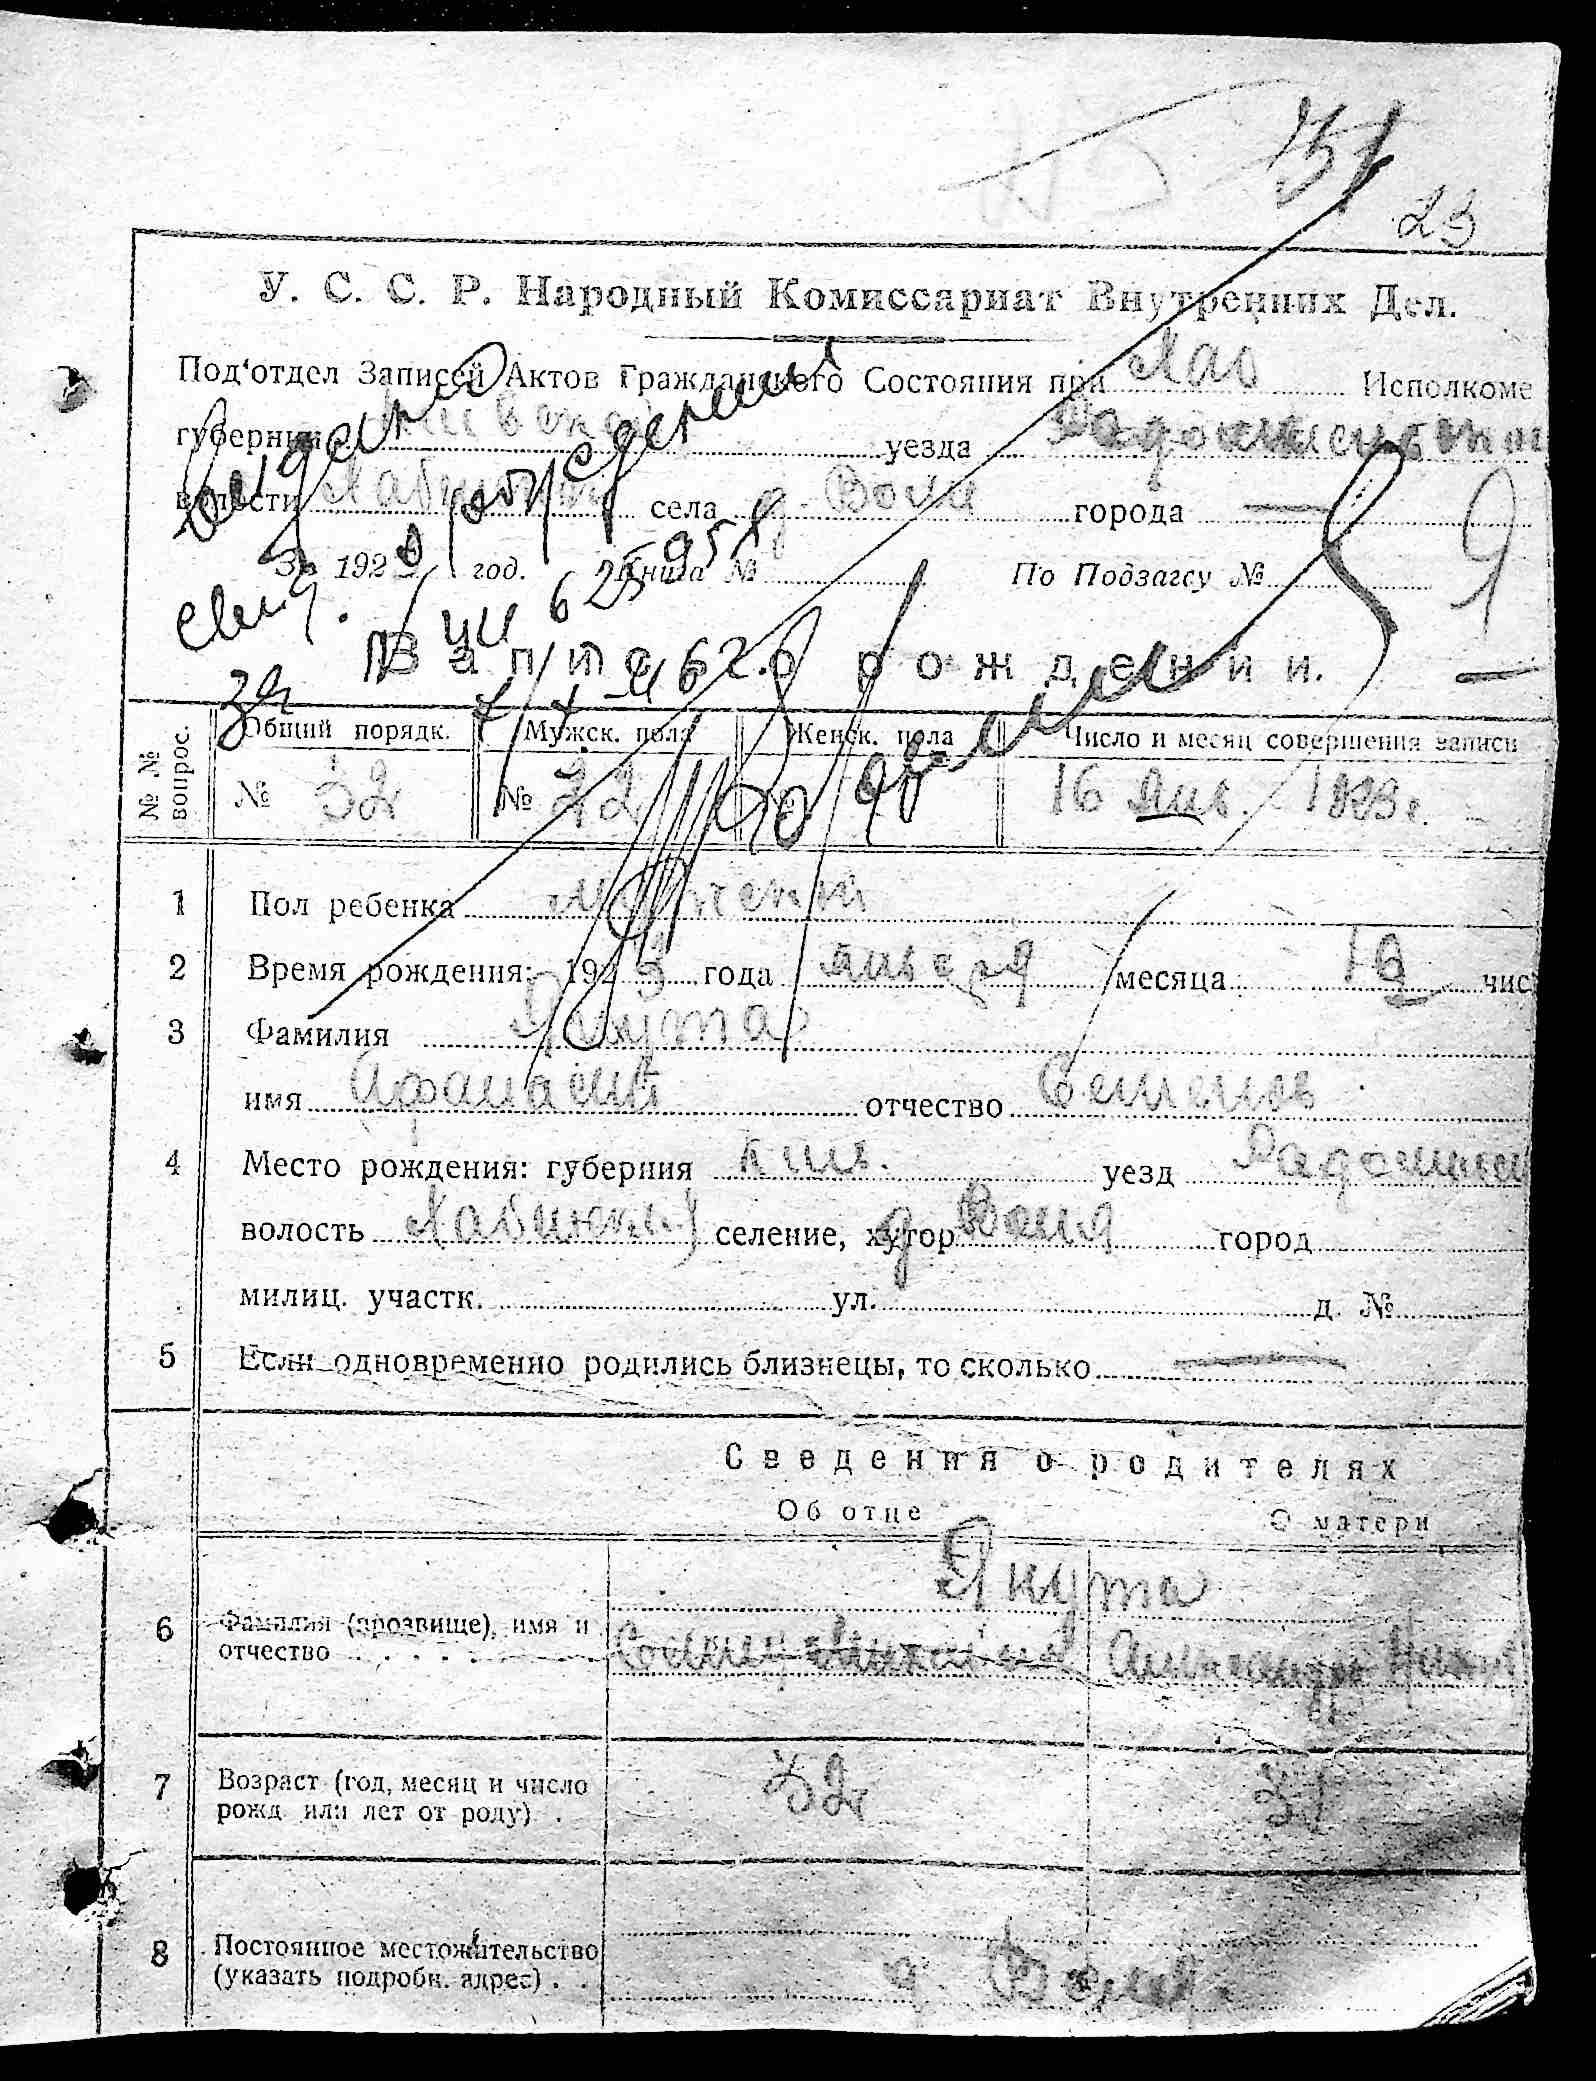 31
23
У. С. С. Р. Народный Комиссариат Внутренних Дел.
Под‘отдел Записей Актов Гражданского Состояния при Хаб Исполкоме
губернии Киевской уезда Радомысльского
волости Хабенской села д. Воля города —
За 192 год. Книга № По Подзагсу №
Выдано повторный
свид.
за
Запись о рождении.
№ № вопрос. Общий порядк. Мужск. пола Женск. пола Число и месяц совершения записи
№ 32 № 22 16 Янв. 1923 г.
1 Пол ребенка мужеский
2 Время рождения: 1923 года января месяца 16 чис
3 Фамилия Якута
имя Афанасий отчество Семенов
4 Место рождения: губерния Киев. уезд Радомысл
волость Хабенский селение, хутор д. Воля город
милиц. участк. ул. д. №
5 Если одновременно родились близнецы, то сколько —
Сведения о родителях
Об отце О матери
Якута
6 Фамилия (прозвище), имя и
отчество Александра
7 Возраст (год, месяц и число
рожд или лет от роду) . 32 31
8 Постоянное местожительство
(указать подробн. адрес) . . д. Воля